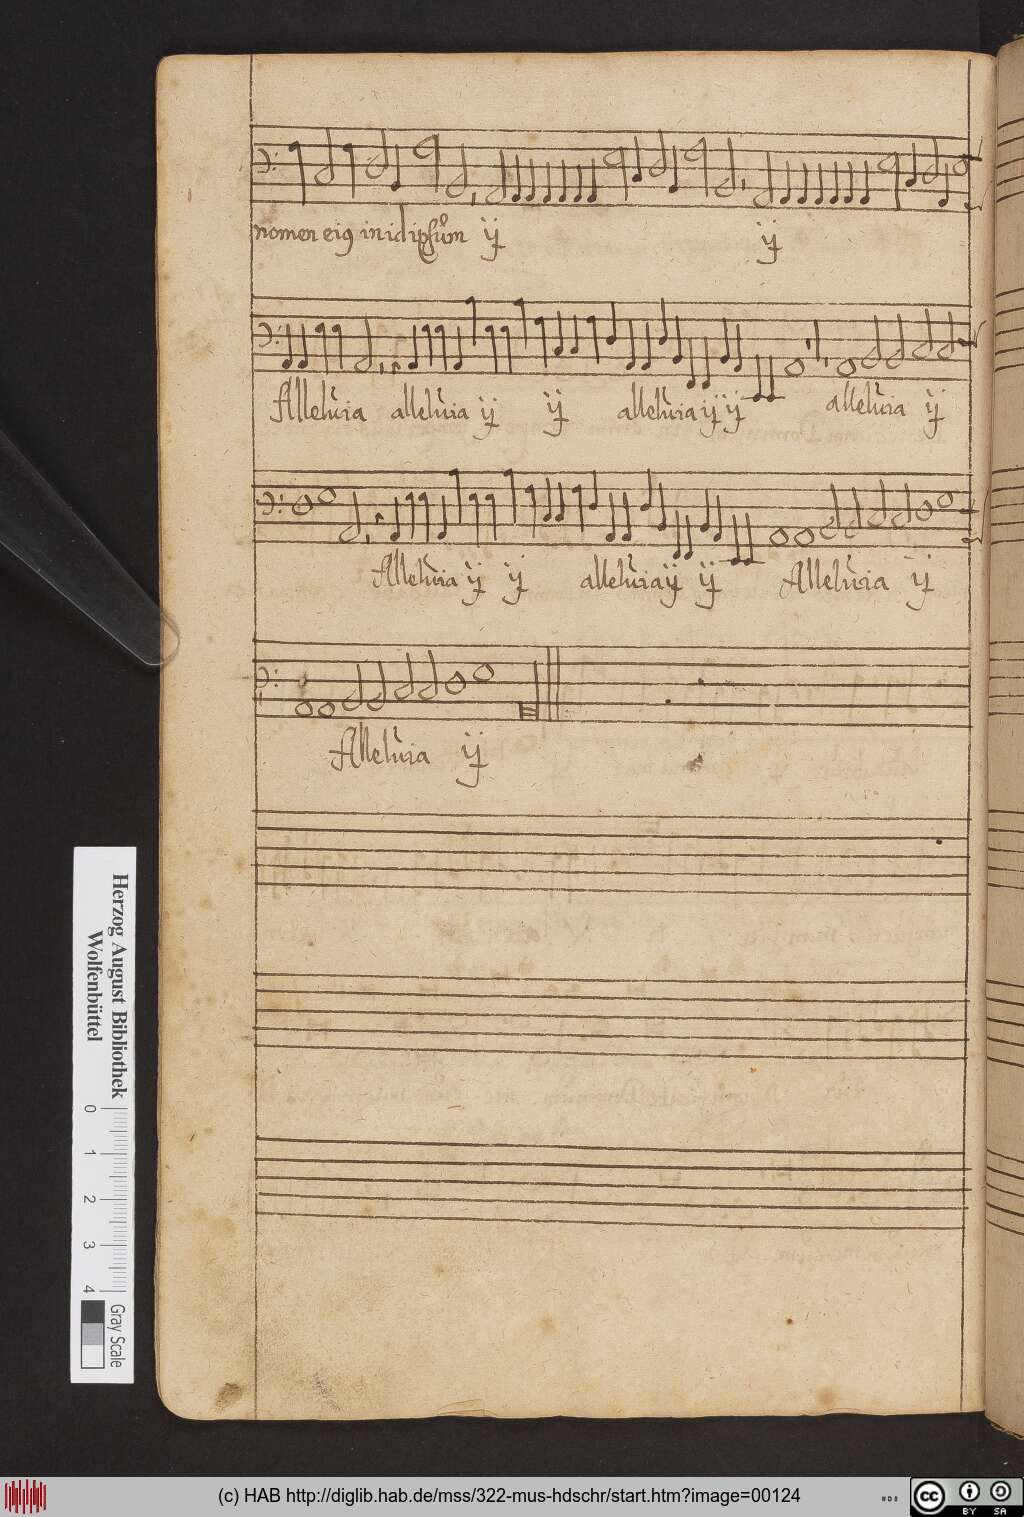 nomen eiꝰ in id ipsum ij ij
Alleluia alleluia ij ij alleluia ij ij alleluia ij
Alleluia ij ij alleluia ij ij Alleluia ij
Alleluia ij
Herzog August Bibliothek
Wolfenbüttel
0 1 2 3 4
Gray Scale
(c) HAB http://diglib.hab.de/mss/322-mus-hdschr/start.htm?image=00124
cc BY SA